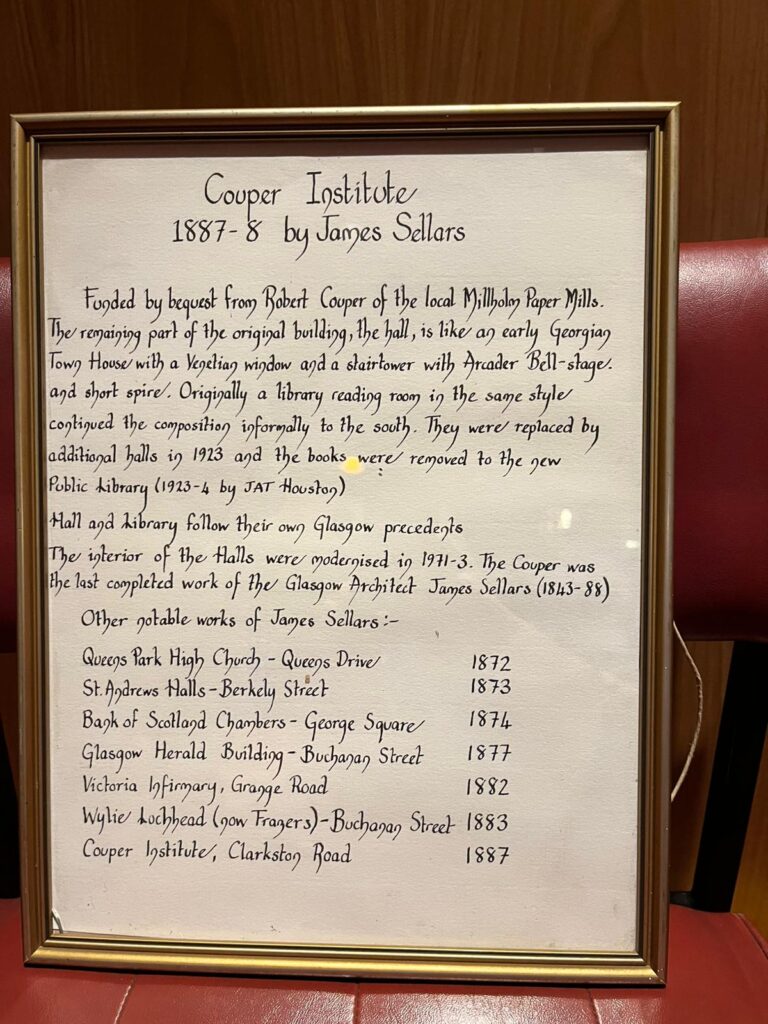 Couper Institute
1887-8 by James Sellars
Funded by bequest from Robert Couper of the local Millholm Paper Mills.
The remaining part of the original building, the hall, is like an early Georgian
Town House with a Venetian window and a stairtower with Arcader Bell-stage.
and short spire. Originally a library reading room in the same style
continued the composition informally to the south. They were replaced by
additional halls in 1923 and the books were removed to the new
Public Library (1923-4 by JAT Houston)
Hall and Library follow their own Glasgow precedents
The interior of the Halls were modernised in 1971-3. The Couper was
the last completed work of the Glasgow Architect James Sellars (1843-88)
Other notable works of James Sellars:-
Queens Park High Church - Queens Drive 1872
St. Andrews Halls - Berkely Street 1873
Bank of Scotland Chambers - George Square 1874
Glasgow Herald Building - Buchanan Street 1877
Victoria Infirmary, Grange Road 1882
Wylie Lochhead (now Frazers) - Buchanan Street 1883
Couper Institute, Clarkston Road 1887